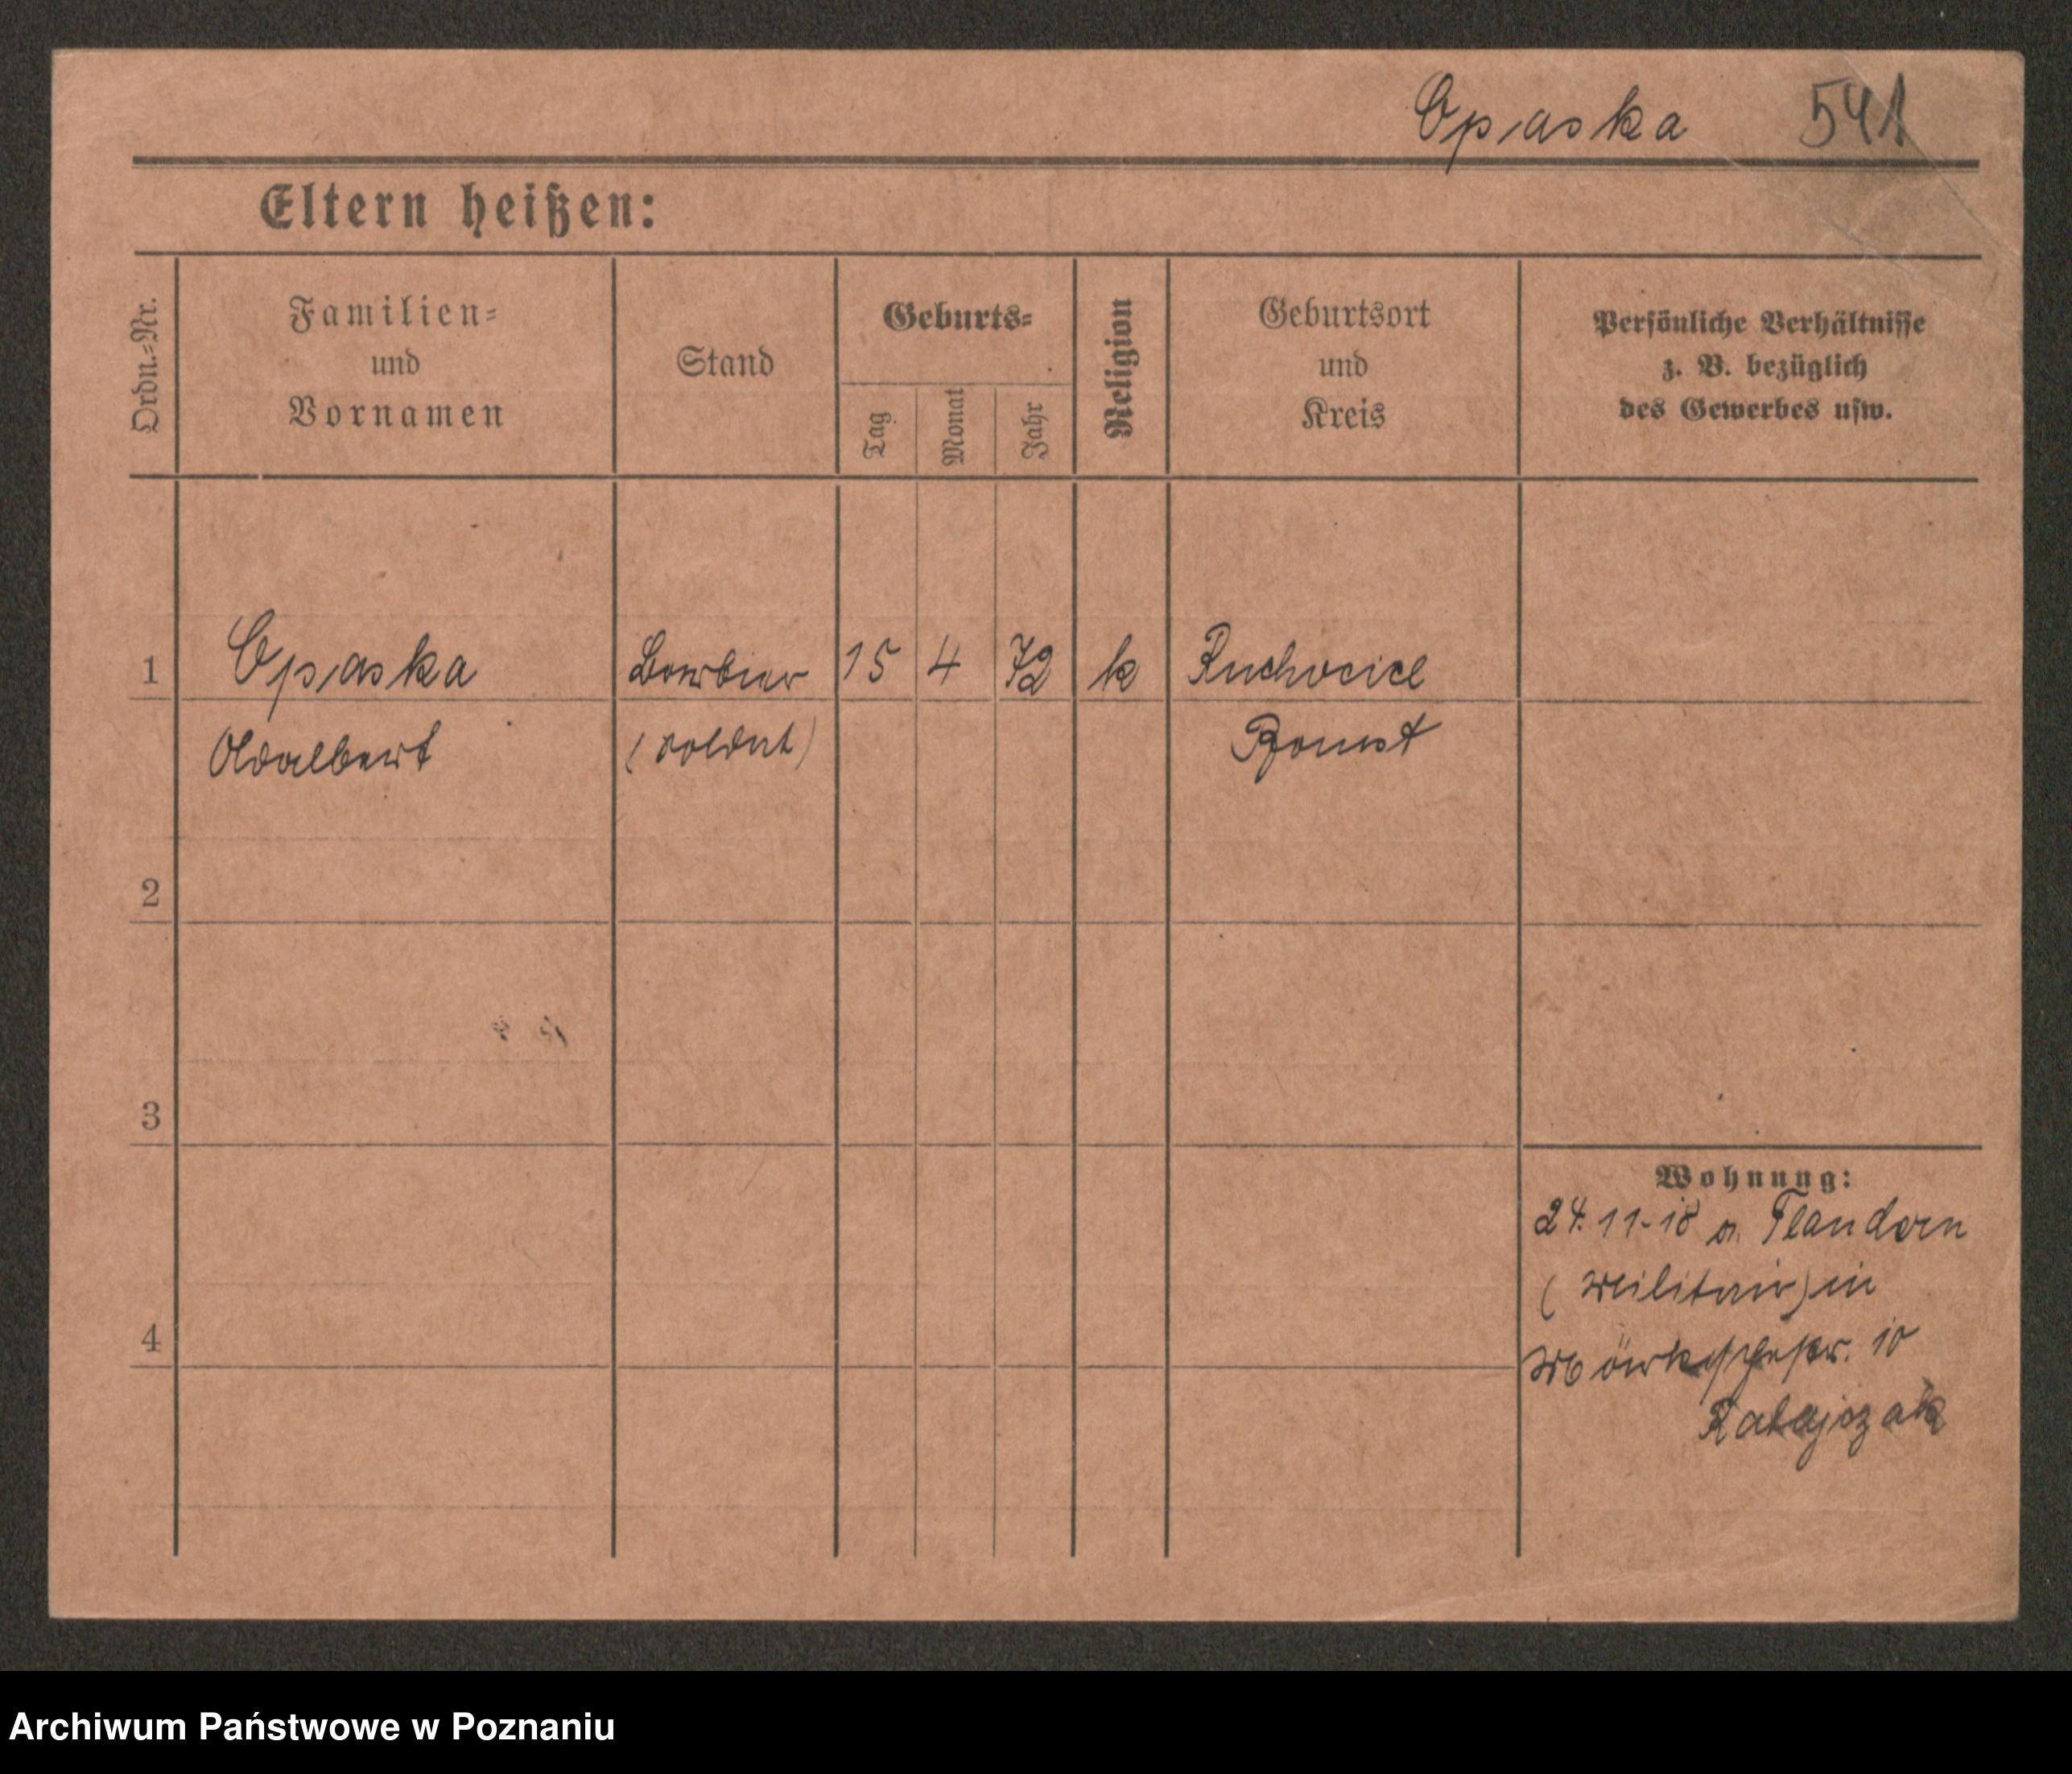 Opaska 541
Eltern heißen:
Ordn.-Nr.
Familien-
und
Vornamen
Stand
Geburts-
Tag
Monat
Jahr
Religion
Geburtsort
und
Kreis
Persönliche Verhältnisse
z. B. bezüglich
des Gewerbes usw.
1 Opaska Barbier 15 4 72 k Ruchocice
Adalbert (Soldat) Bomst
2
3
4
Wohnung:
24.11.18 v. Flandern
(Militair) in
10
Ratajczak
Archiwum Państwowe w Poznaniu